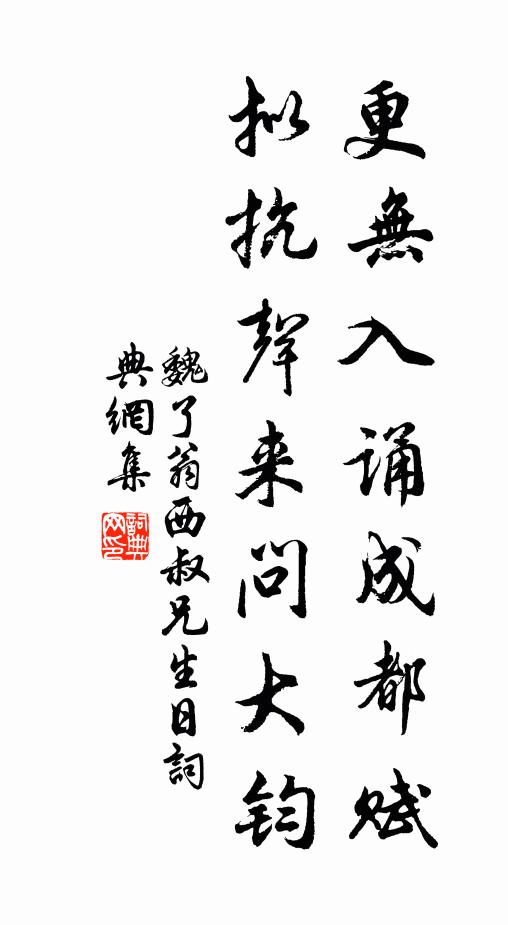 更無入誦成都賦
拟抗聲来問大鈞
魏了翁西叔兄生日詞
典網集
詞典網印